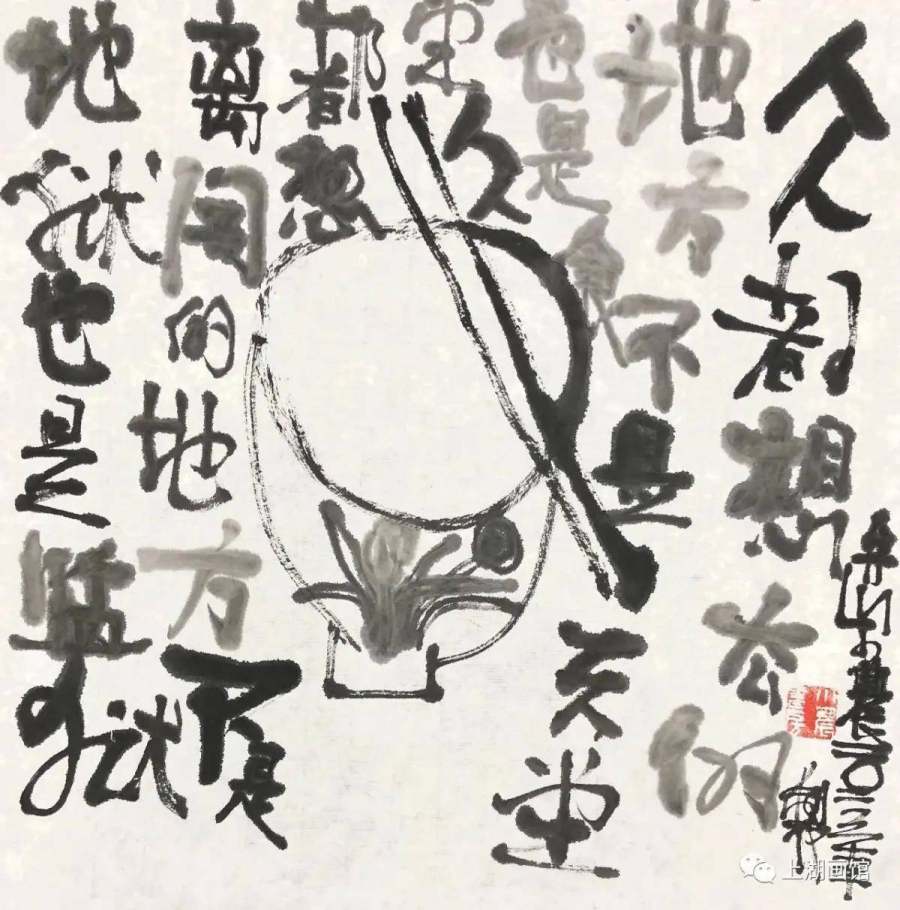 人人都想去的
地方不是天堂
也是食
堂人人
都想
离开的地方不是
地狱也是监狱
上湖画馆